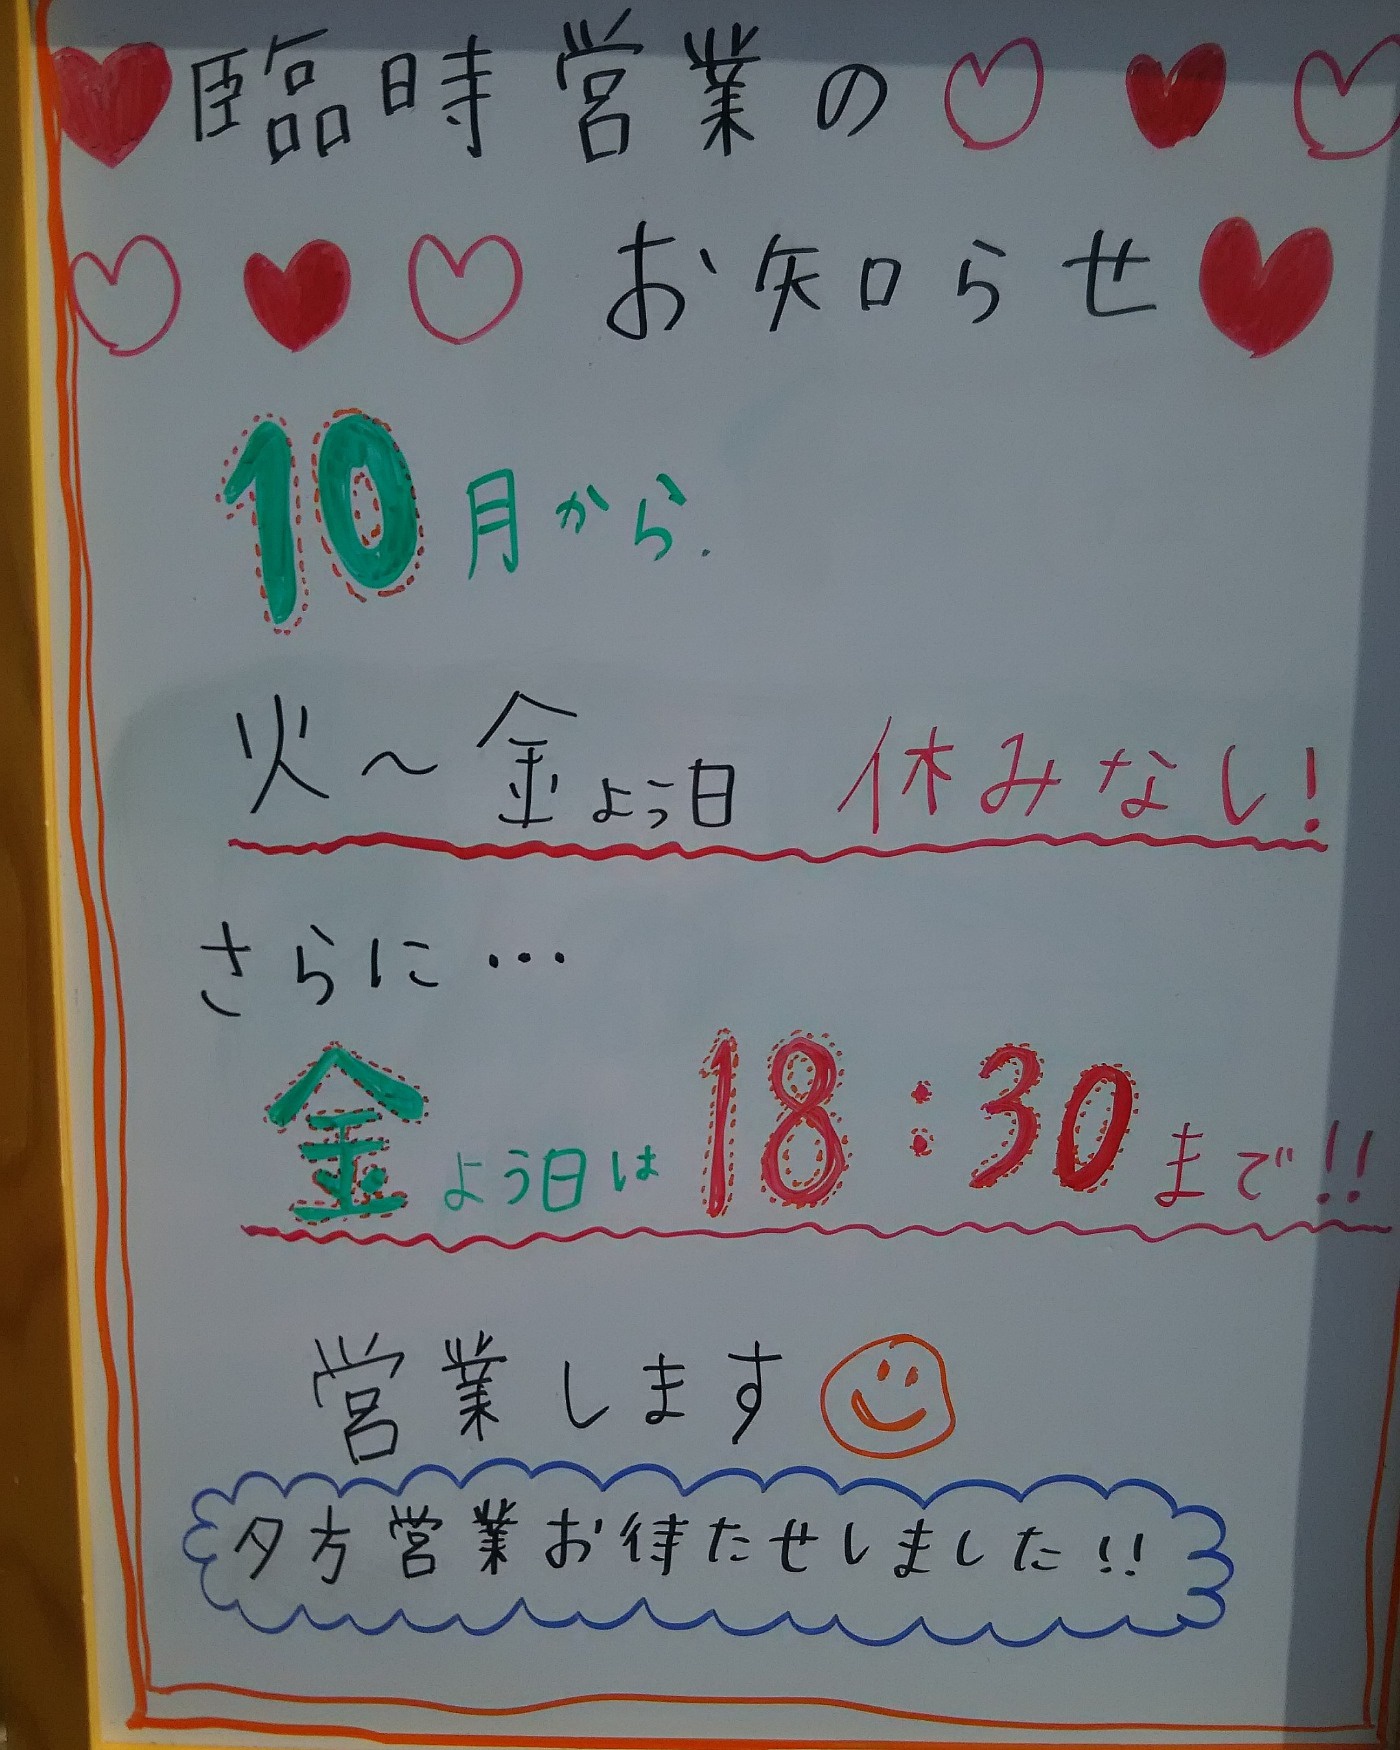 臨時営業の
お知らせ
10月から.
火～金よう日 休みない!
さらに…
金よう日は18:30まで!!
営業します
夕方営業お待たせしました!!